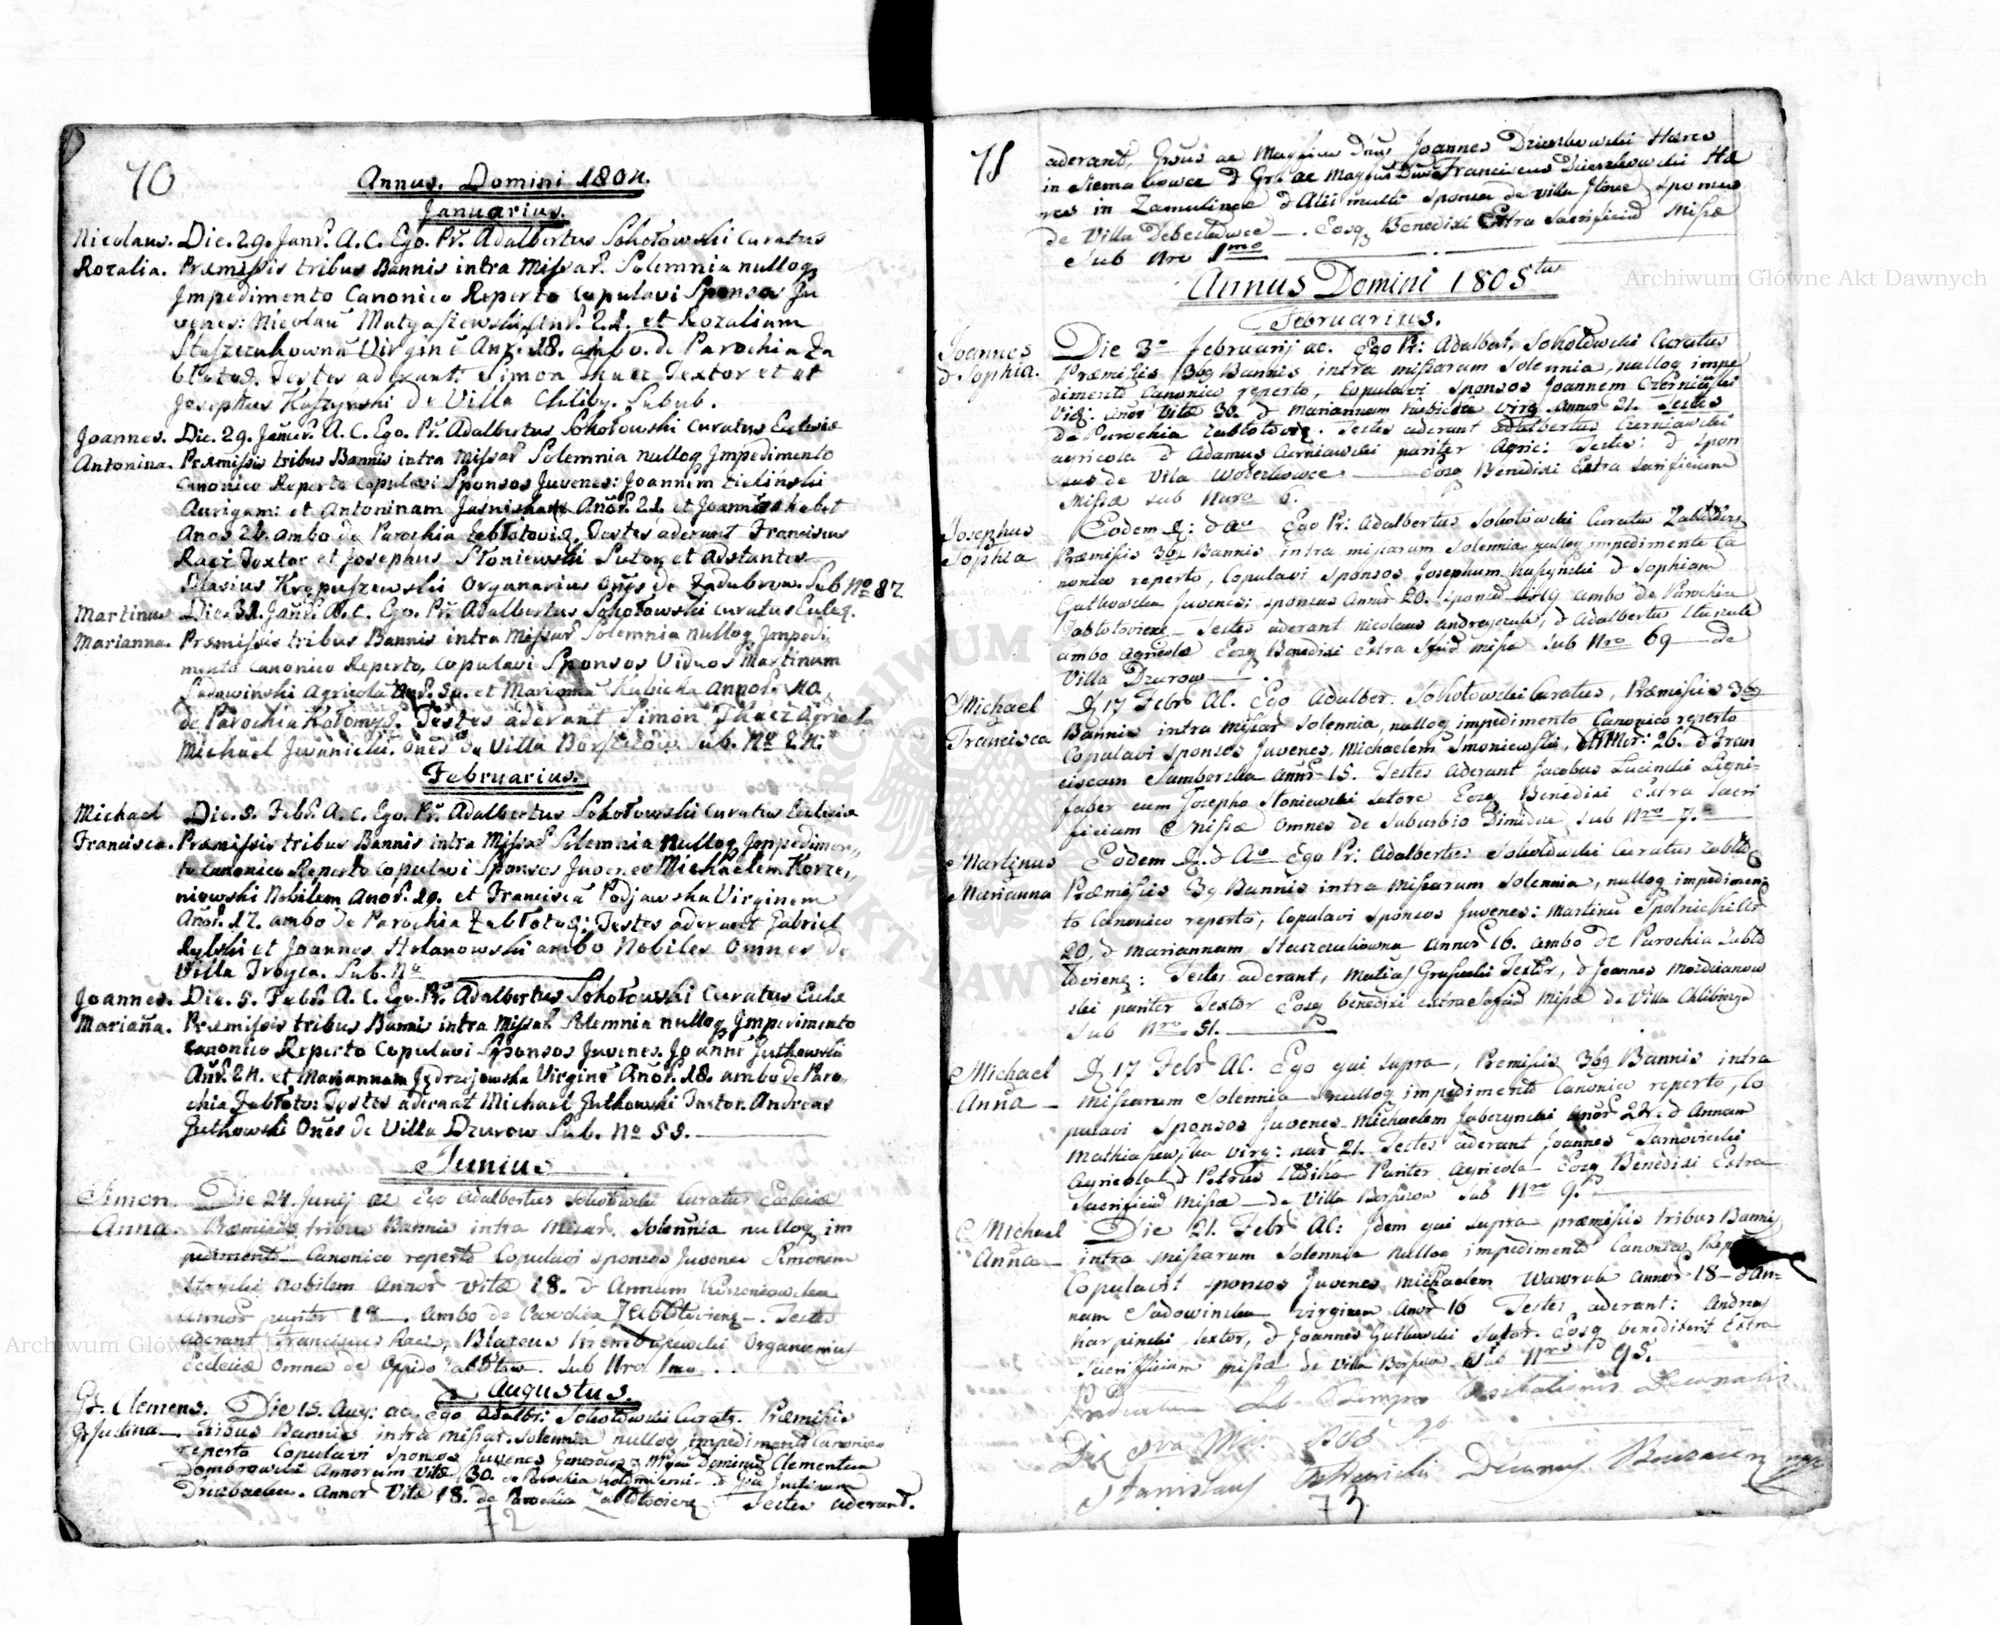 70
Annus. Domini 1804.
Januarius.
Nicolaus. Die. 29. Janr. A. C. Ego. Pr. Adalbertus Sokołowski Curatus
Rozalia. Præmissis tribus Bannis intra Missar. Solemnia nulloq
Impedimento Canonico Reperto Copulavi Sponsos Ju
venes: Nicolau Matyaszewski Anr. 21. et Rozaliam
Staszczukowna Virgine Anr. 18. ambo. de Parochia Za
błotoq. Testes aderant. Simon Tkacz Textor et at
Josephus Kaszynski de Villa Chliby. Sub ub.
Joannes. Die. 29. Januar. A. C. Ego. Pr. Adalbertus Sokołowski Curatus Eclesiæ
Antonina. Præmissis tribus Bannis intra Missar Solemnia nulloq Impedimento
Canonico Reperto Copulavi Sponsos Juvenes: Joannem Zieliński
Aurigam: et Antoninam Anor. 21. et
Anos 26. ambo de Parochia Zabłotoviq. Testes aderant Franciscus
Racz Textor et Josephus Słoniewski Sutor et Adstantes
Blasius Krępuszewski Organarius Ones de Zadubrow. Sub No 87
Martinus Die. 31. Janr. A. C. Ego. Pr. Adalbertus Sokołowski Curatus Ecleq.
Marianna. Præmissis tribus Bannis intra Missar Solemnia nulloq Impedi
mento Canonico Reperto, Copulavi Sponsos Viduos Martinum
Sadowinski Agricola Anr. 50. et Marianna Kubicka annor. 40.
de Parochia Kołomyq. Testes aderant Simon Tkacz Agricola
Michael Jwanicki. Ones de Villa Borszczow. Sub. No 24.
Februarius.
Michael Die. 5. Febr. A. C. Ego. Pr. Adalbertus Sokołowski Curatus Eclesiæ
Francisca. Præmissis tribus Bannis intra Missar Solemnia nulloq Impedimen
to Canonico Reperto Copulavi Sponsos Juvenes Michaelem Korze
niowski Nobilem Anor. 29. et Francisca Podjawska Virginem
Anor. 17. ambo de Parochia Zabłotoq: Testes aderant Gabriel
Rylski et Joannes Strlanowski ambo Nobiles Omnes de
Villa Troyca. Sub. No
Joannes. Die. 5. Febr. A. C. Ego. Pr. Adalbertus Sokołowski Curatus Ecle
Mariana. Præmissis tribus Bannis intra Missar Solemnia nulloq Impedimento
Canonico Reperto Copulavi Sponsos Juvenes. Joanne Gutkowski
Anr. 24. et Mariannam Jędrzejowska Virgine Anor. 18. ambo de Paro
chia Zabłoto: Testes aderant Michael Gutkowski Textor. Andreas
Gutkowski Ones de Villa Dzurow Sub. No 55.
Junius
Simon. Die 24. Junij ac Ego Adalbertus Sokołowski Curatus Ecclesiæ
Anna. Præmissis tribus Bannis intra Missar. Solennia nulloq im
pedimento Canonico reperto Copulavi sponsos Juvenes Simonem
nobilem Annor Vitæ 18. & Annam
Annor pariter 18. Ambo de Parochia Zabłotovienq. Testes
aderant Franciscus Racz, Blazeus Organarius
Ecclesiæ omnes de Oppido Zabłotow. Sub Nro 1mo. . .
Augustus.
Gs. Clemens. Die 15. Aug: ac. Ego Adalbr: Sokołowski Curatq. Præmissis
Gs Justina Tribus Bannis intra missar. solennia nulloq impedimento Canonico
reperto Copulavi sponsos Juvenes Generosus a Mgus Dominus Clementem
Dombrowski Annorum Vitæ 30. de Parochia & Gsa Justinam
Annor Vitæ 18. de Parochia Zabłotovienq. Testes aderant.
72
71
aderant, Gsus ac Magficus Dnus Joannes Dzierzkowski Hæres
in Siemakowce & Gs. ac Magfus Dnus Franciscus Dzierzkowski Hæ
res in Zamulince & Alii multi sponsa de villa Ilince sponsus
de Villa Debeslawce. Eosq Benedixi Extra Sacrificiū Missæ
Sub Nro 1mo
Annus Domini 1805tus
Februarius.
Joannes Die 3a februarij ac. Ego Pr: Adalbert, Sokołowski Curatus
& Sophia. Præmissis 3bq Bannis intra missarum solennia, nulloq impe
dimento Canonico reperto, Copulavi sponsos Joannem Czerniawski
Vid: Anor Vitæ 30. & Mariannam Kubicka virg. Annor 21. Testes
de Parochia Zabłotoviq. Testes aderant Adalbertus Czerniawski
agricola & Adamus Czerniawski pariter Agric: Testes: & Spon
sus de Vila Wolczkowce Eosq Benedixi Extra Sacrificium
Missæ sub Nuro 6.
Josephus Eodem D: & Ao Ego Pr: Adalbertus Sokołowski Curatus Zabłotovq
Sophia Præmissis 3bq Bannis intra missarum solennia nulloq impedimento Ca
nonico reperto, Copulavi Sponsos Josephum Kaszynski & Sophiam
Gutkowska Juvenes: sponsus Annor 20. sponsa 19 ambo de Parochia
Zabłotoviene Testes aderant Nicolaus Andreyczuk, & Adalbertus
ambo Agricolæ Eosq Benedixi Extra Sfciū missæ Sub Nro 69 de
Villa Dzurow.
Michael D 17 Febr AC. Ego Adalber. Sokołowski Curatus, Præmissis 3bq
Francisca Bannis intra missar solennia, nulloq impedimento Canonico reperto
Copulavi sponsos Juvenes, Michaelem Smoniewski, 26. & Fran
ciscam Samborska Annr 15. Testes aderant Jacobus Lucinski Ligni-
faber cum Josepho Stoniewski sutore Eosq Benedixi Extra Sacri
ficium Missæ Omnes de Suburbio Dimidca sub Nro 7.
Martinus Eodem D. & Ao Ego Pr: Adalbertus Sokołowski Curatus Zabłto
Marianna Præmissis 3bq Bannis intra missarum solennia, nulloq impedimen
to Canonico reperto, Copulavi sponsos Juvenes: Martinū Spolnicki Ar
20, & Mariannam Staszczukowna Annor 16. ambo de Parochia Zabło
tovienq: Testes aderant, Matias Textor, & Joannes Mardzianow
ski pariter Textor Eosq benedixi extra Sacfiū Missæ de Villa Chlibiczyn
Sub Nro 51.
Michael D 17 Febr AC. Ego qui supra, Premissis 3bq Bannis intra
Anna Missarum Solennia nulloq impedimento Canonico reperto, Co
pulavi Sponsos Juvenes Michaelem Jabczynski Anor 24. & Annam
virg: anr 21. Testes aderant Joannes Tarnovieski
Agricola & Petrus Pariter Agricola Eosq Benedixi Extra
Sacrificiū Missæ de Villa Borszczow Sub Nro 9.
Michael Die 21. Febr AC: Jdem qui supra præmissis tribus Bannis
Anna intra Missarum Solennia nulloq impedimento Canonico
Copulavit sponsos Juvenes Michaelem Wawruk Annor 18 & An-
nam Sadowinska virginem Anor 16 Testes aderant: Andreas
Karpinski textor, & Joannes Gutkowski Sutor. Eosq benedixerit Extra
Sacrificium missæ de Villa Borszczow Sub Nro 95.
Productum sub Tempore Visitationis Decanalis
Die 8va Maj. 1805
Stanislaus Decanus
73
Archiwum Główne Akt Dawnych
Archiwum Główne Akt Dawnych
ARCHIWUM
AKT DAWNYCH